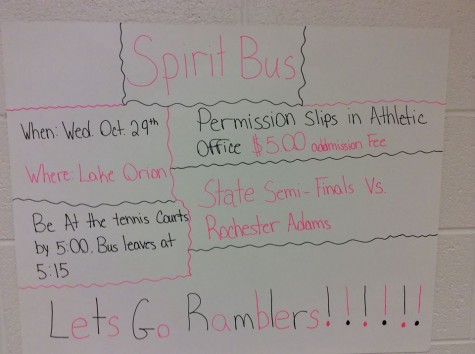 Spirit Bus
When: Wed. Oct. 29th
Where: Lake Orion
Be At the tennis Courts
by 5:00. Bus leaves at
5:15
Permission Slips in Athletic
Office $5.00 addmission Fee
State Semi-Finals Vs.
Rochester Adams
Lets Go Ramblers!!!!!!!